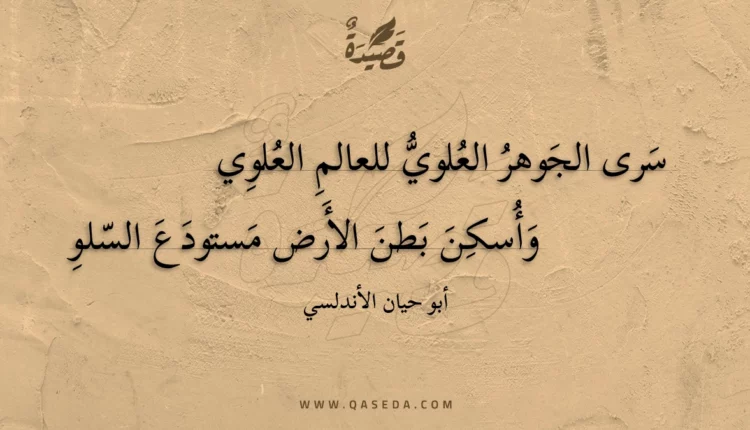 قَصِيدَةٌ
سَرى الجَوهرُ العُلويُّ للعالمِ العُلوِي
وَأُسكِنَ بَطنَ الأَرض مَستودَعَ السّلوِ
أبو حيان الأندلسي
WWW.QASEDA.COM